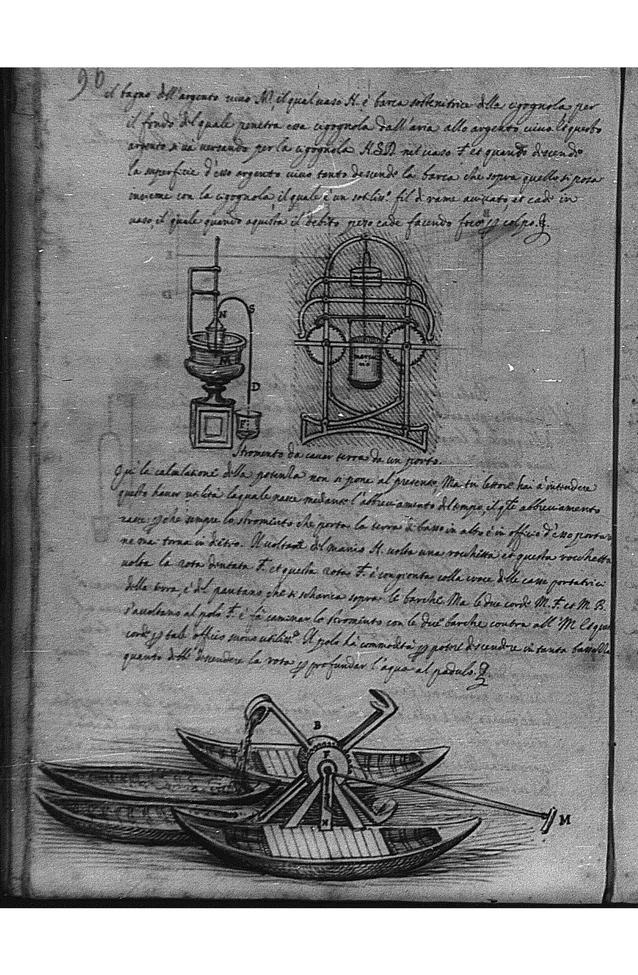 96
il bagno dell'argento vivo M. il qual vaso H. è barca sostenitrice della cigognola per
il fondo del quale penetra essa cigognola dall'aria allo argento vivo, et questo
argento si va versando per la cigognola H.S.D. nel vaso F. et quando descende
la superficie d'esso argento vivo tanto descende la barca che sopra quello si posa
insieme con la cigognola il quale è un sottilis.º fil di rame avivato et cade in
vaso, il quale quando aquista il debito peso cade facendo foco colpo.
N S
M
D
F
Stromento da cavar terra da un porto.
Qui la calculatione della potentia non si pone al presente, Ma tu lettore hai à intendere
questo haver utilità la quale nasce mediante l'abbreviamento del tempo, il q.le abbreviamento
nasce che sempre lo stromento che porta la terra di basso in alto è in officio d'esso portare
ne mai torna in dietro. Il voltante del manico H. volta una rocchetta et questa rocchetta
volta la rota dentata F. et questa rota F. è congionta colla croce delle casse portatrici
della terra, è del pantano che si scharica sopra le barche. Ma le due corde M.F. et M.B.
s'avoltano al polo F. è fà caminar lo stromento con le due barche contra all' M. Et queste
corde tal' officio sono utilis.º Il polo hà commodità poter discendere in tanta bassezza
quanto dee discendere la rota profundar l'aqua al padulo.
B
F
N
M